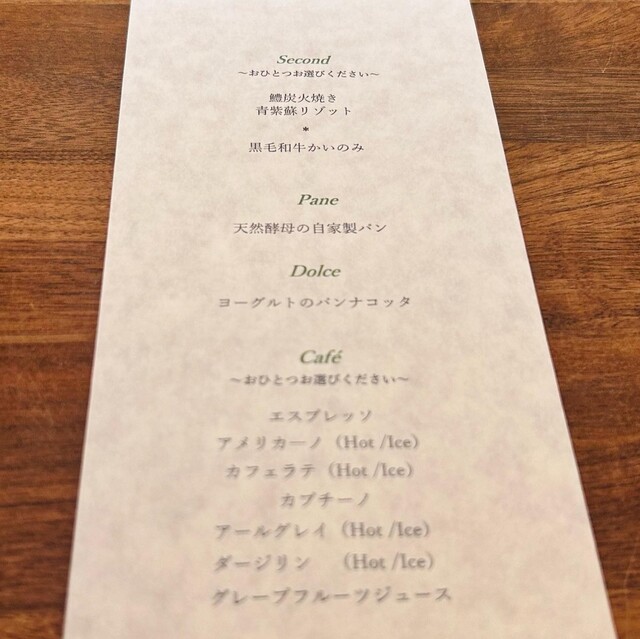 Second
～おひとつお選びください～
鱧炭火焼き
青紫蘇リゾット
*
黒毛和牛かいのみ
Pane
天然酵母の自家製パン
Dolce
ヨーグルトのパンナコッタ
Café
～おひとつお選びください～
エスプレッソ
アメリカーノ（Hot /Ice）
カフェラテ（Hot /Ice）
カプチーノ
アールグレイ（Hot /Ice）
ダージリン　（Hot /Ice）
グレープフルーツジュース